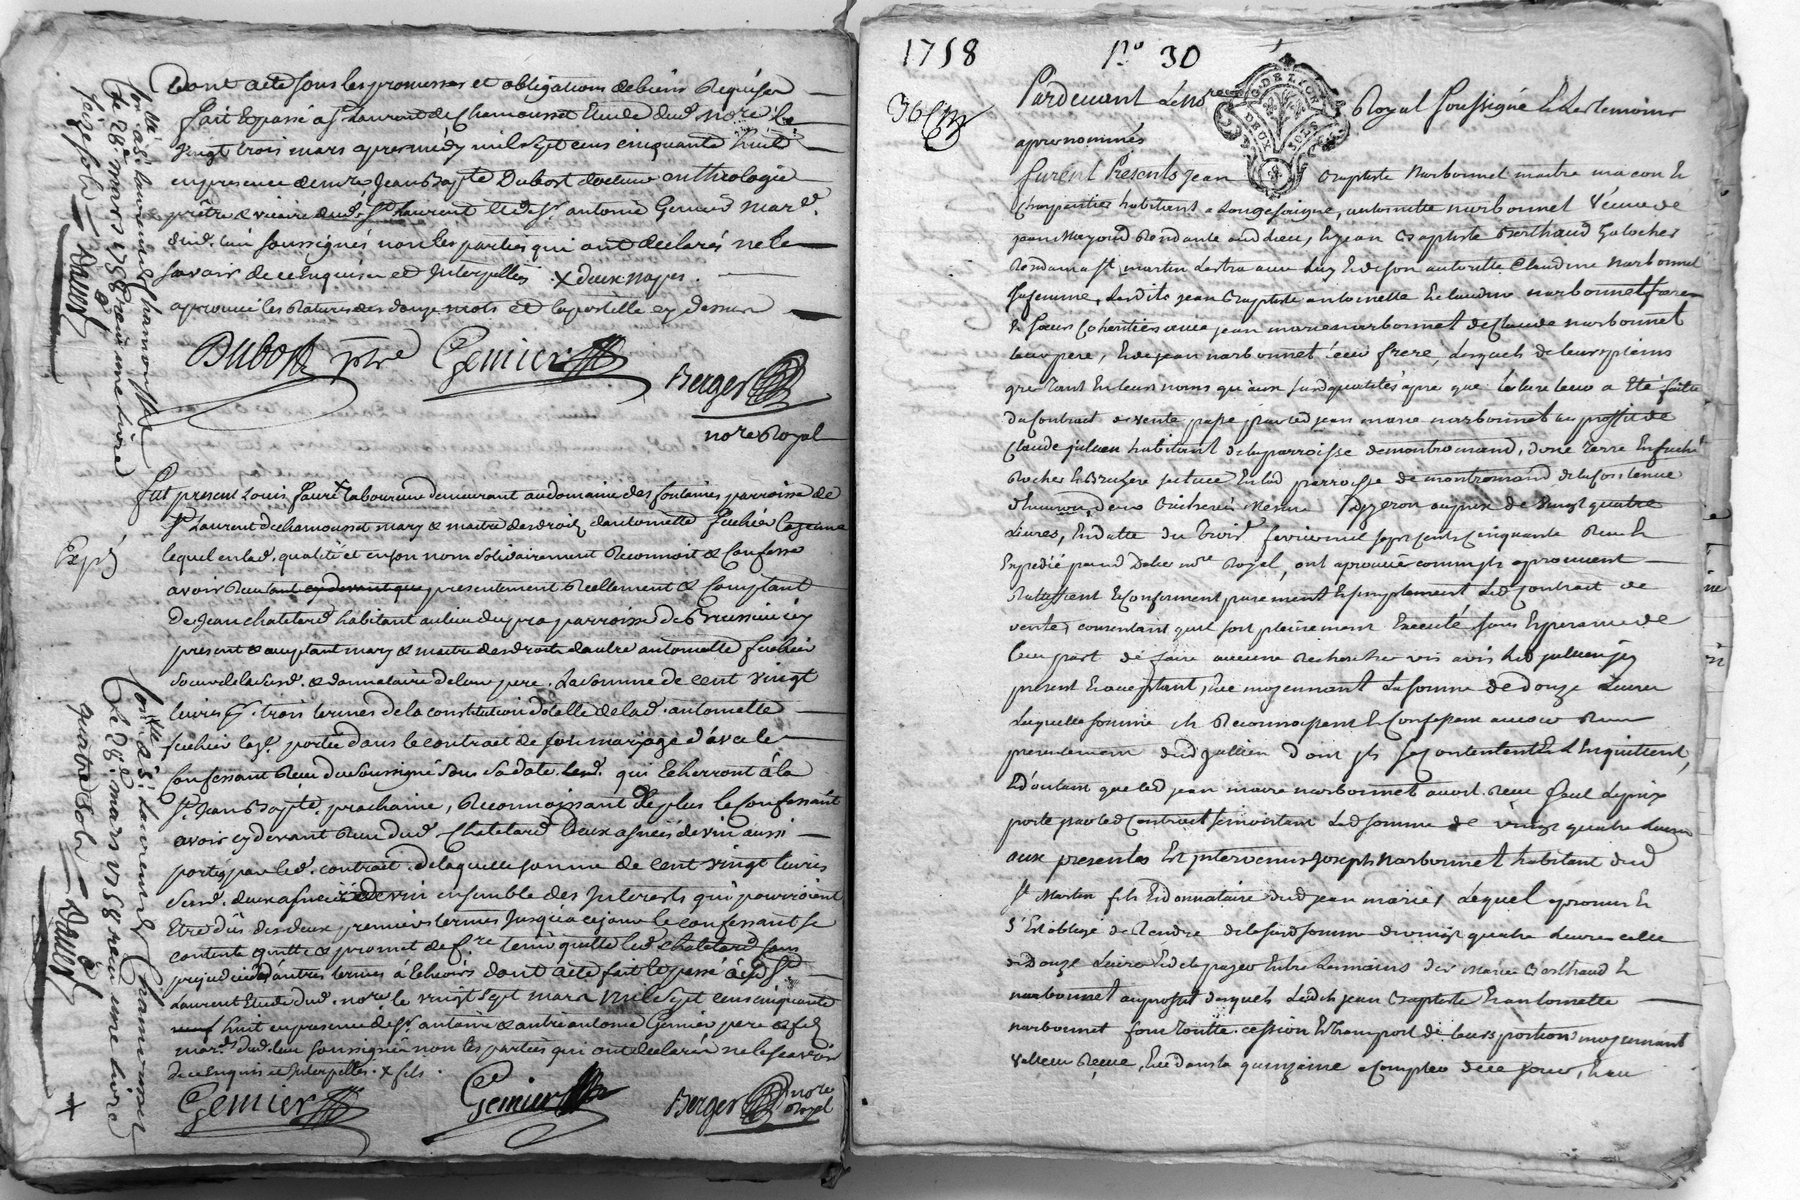 Dont acte sous les promesses et obligations de biens Requises
fait & passé a St Laurent de Chamousset Etude dud. nore le
vingt trois mars apres midy mil sept cens cinquante huit
en presence de mre Jean Bapte Dubost docteur en theologie
prêtre & vicaire dud. St Laurent & de Sr antoine Gemier mard.
dud. lieu soussignés non les parties qui ont declarés ne le
savoir de ce Enquises et Interpellées x deux nayes.
aprouvé les Ratures de douze mots et la postille cy dessus
Dubost ptre Gemier
Berger
nore Royal
Con.lé a St laurent Chamousset
le 28e mars 1758 reçu une livre
seize sols
Davost
Expé
fut present Louis faure laboureur demeurant au domaine des fontaines parroisse de
St Laurent de chamousset mary & maitre des droits d'antoinette fuchier
lequel en lad. qualité et en son nom solidairement Reconnoit & Confesse
avoir Reçu tant cy devant que presentement Reellement & Comptant
de Jean chatelard habitant au lieu du pra parroisse de Brussieu icy
present & acceptant mary & maitre des droits d'autre antoinette fuchier
soeur de la susd. & donnataire de leur pere. La somme de cent vingt
livres pr. trois termes de la constitution dotalle de lad. antoinette
fuchier portée dans le contrat de son mariage d'avec le
Confessant Reçu du soussigné sous sa date. qui Echerront à la
St Jean Bapte prochaine, Reconnoissant de plus le Confessant
avoir cy devant Reçu dud. Chatelard deux asnées de vin aussi
portés par led. contrat. de laquelle somme de Cent vingt livres
susd. deux asnées de vin ensemble des Interests qui pourroient
Etre dûs des deux premiers termes Jusqu'a ce jour le confessant se
contente quitte & promet de fre tenir quitte led. chatelard sans
prejudice d'autres termes à Echeoir dont acte fait & passé aud. St
Laurent Etude dud. nore le vingt sept mars mil sept cens cinquante
huit en presence de Sr antoine & autre antoine Gemier pere & fils
mards dud. lieu soussignés non les parties qui ont declarés ne le scavoir
de ce Enquis et Interpellés. x fils.
Gemier Gemier Berger nore
Royal
Con.lé a St Laurent Chamousset
le 28e mars 1758 reçu une livre
quatre sols
Davost
+
1758 No 30
36
G. DE LION
DEUX SOLS
Pardevant le Nore Royal soussigné & les temoins
apres nommés
furent Presents Jean Baptiste Narbonnet maitre macon &
charpentier habitant a Longessaigne, antoinette narbonnet veuve de
jean Mayoud Residante aud lieu, & jean Baptiste Berthaud Galocher
Residant a St martin Lestra avec luy & de son autorité Claudine narbonnet
sa femme, Lesdits jean Baptiste antoinette & claudine narbonnet frere
& soeurs Coheritiers avec jean marie narbonnet de Claude narbonnet
leur pere, & de jean narbonnet leur frere, Lesquels de leurs pleins
grés tant en leurs noms qu'aux susd qualités apres que lecture leur a Eté faitte
du Contrat de vente passé par led jean marie narbonnet au proffit de
Claude julien habitant de la parroisse de montromand, d'une terre En friche
Rocher & Bruyere scituée En lad parroisse de montromand de la contenue
d'Environ deux Bicherées mesure d'yzeron au prix de vingt quatre
Livres, En datte du trois fevrier mil sept cents cinquante Reçu &
Expedié par nore Royal, ont aprouvé comme ils aprouvent
Rattiffient & Confirment purement & simplement Led Contrat de
vente, consentant qu'il soit pleinement Executé sans Esperance de
leur part de faire aucune Recherche vis avis led julien icy
present & acceptant, Ce moyennant La somme de Douze Livres
Laquelle somme ils Reconnoissent & Confessent avoir Reçu
presentement dud Jullien dont ils se contentent & L'Enquittent,
& d'autant que led jean marie narbonnet avoit Reçu seul le prix
porté par led Contrat se montant Lad somme de vingt quatre Livres
aux presentes Est intervenu Joseph Narbonnet habitant dud
St Martin fils & donnataire dud jean marie, Lequel a promis &
s'Est obligé de Rendre de la susd somme de vingt quatre Livres celle
de Douze Livres & de la payer Entre Les mains des maries Berthaud &
narbonnet au profit desquels Lesdits jean Baptiste & antoinette
narbonnet font toutte cession & transport de leurs portions moyennant
valleur Reçue, Ce dans la quinzaine a Compter de ce jour, & au